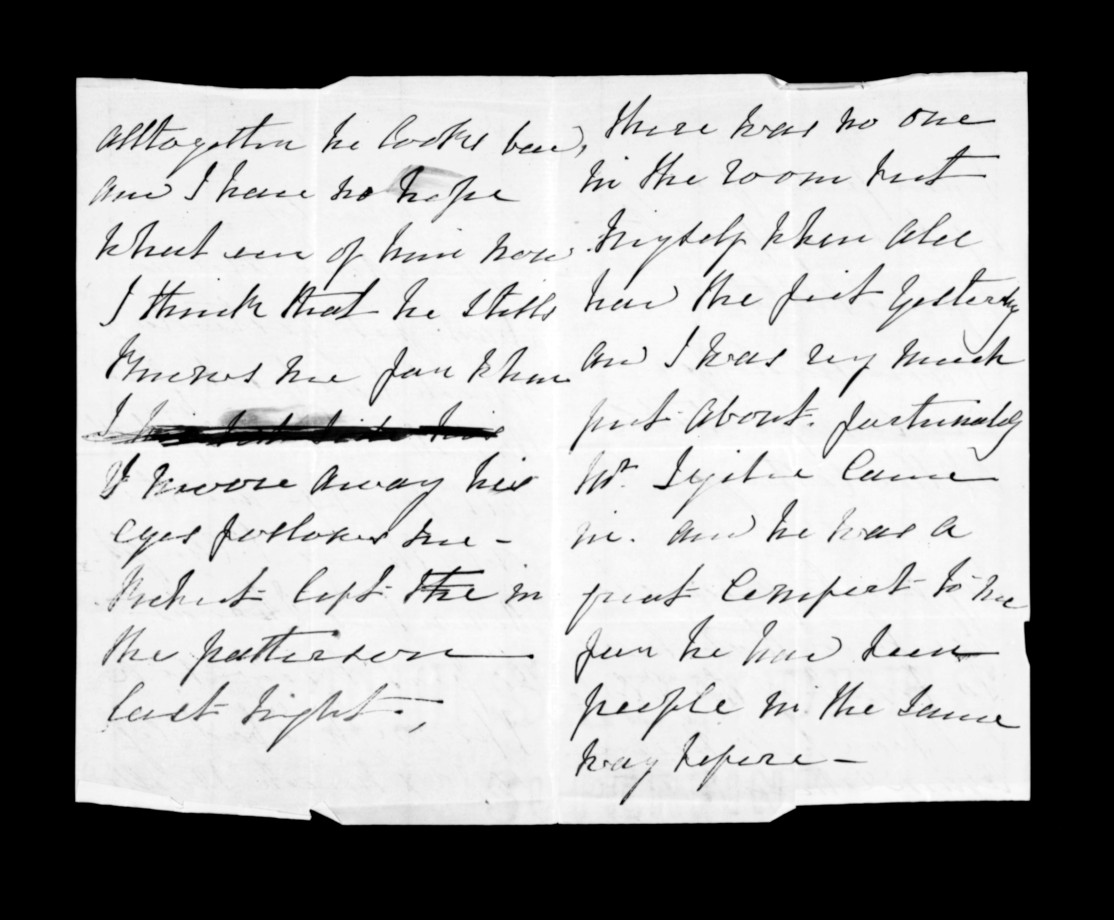 alltogether he looks bad,
and I have no hope
what ever of him now
I think that he still
knows me for when
I
I moove away his
eyes follows me -
Robert left the in
the patterson
last night.,
there was no one
in the room but
myself when Alec
had the fit yesterday
and I was very much
put about. fortunately
Mr. came
in. and he was a
great comfort to me
for he had seen
people in the same
way before -